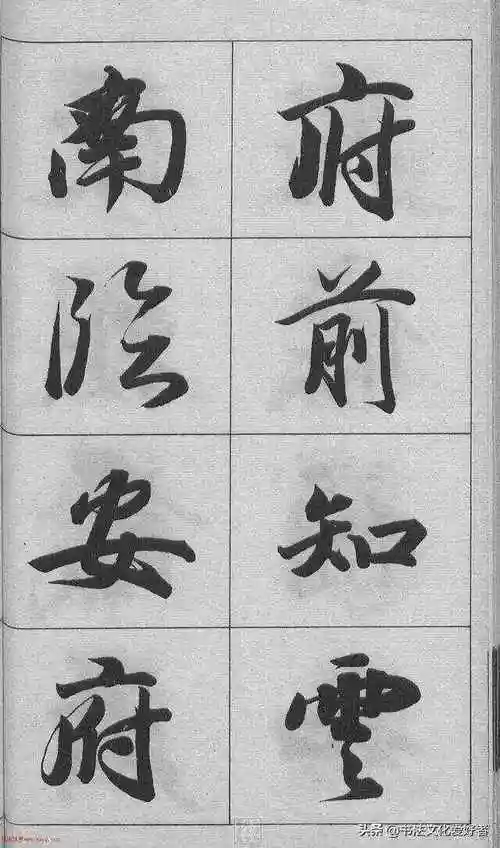 府前知雲
南臨安府
头条 @书法文化爱好者